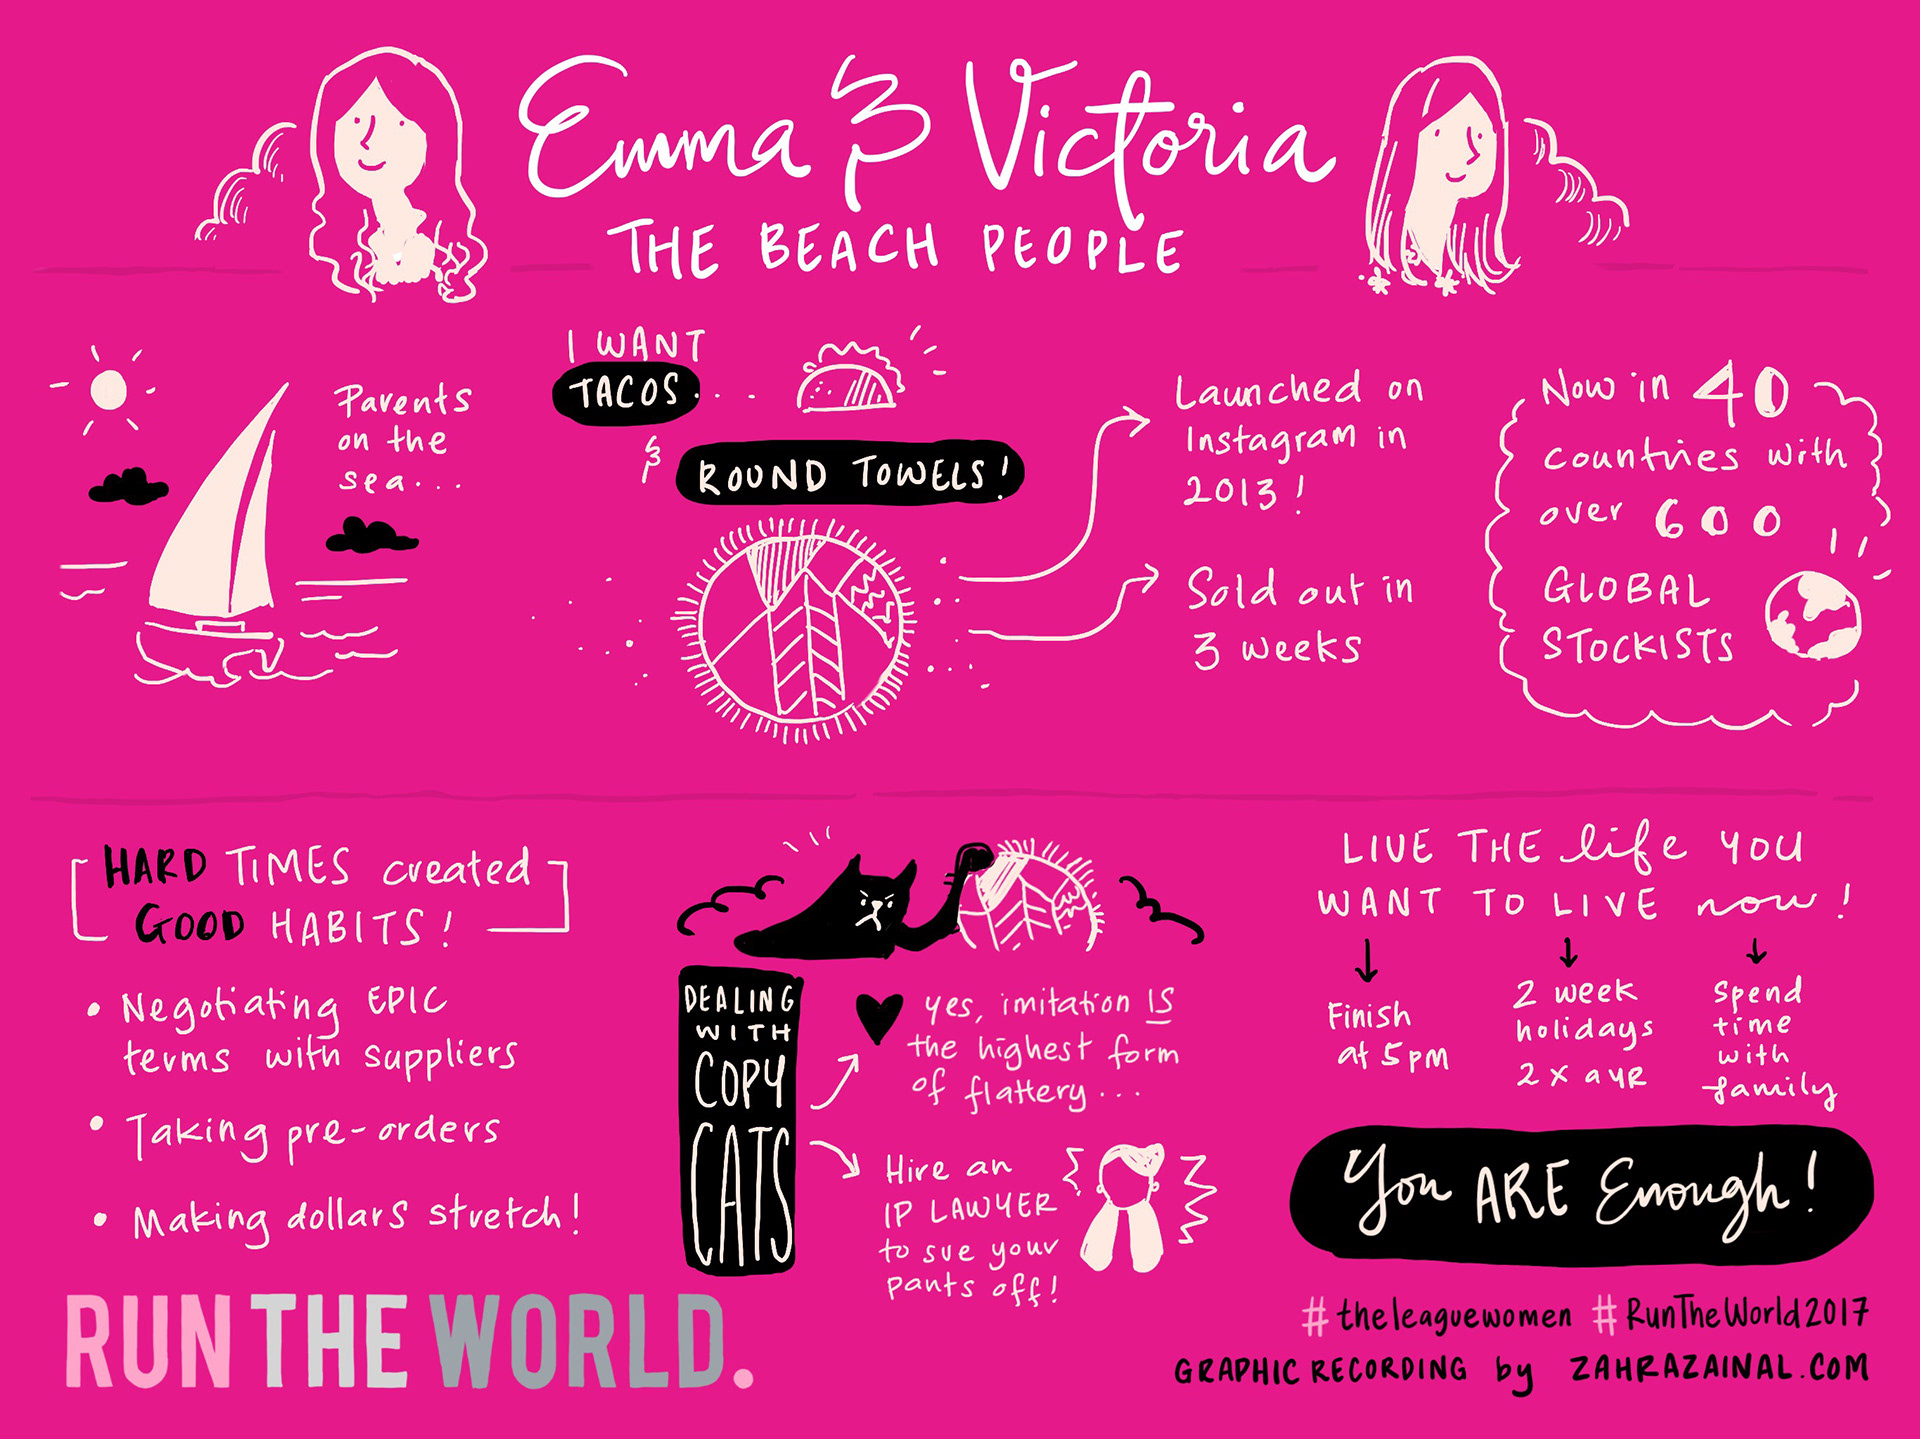 Emma & Victoria
THE BEACH PEOPLE
Parents
on the
sea...
I WANT
TACOS...
&
ROUND TOWELS!
Launched on
Instagram in
2013!
Sold out in
3 weeks
Now in 40
countries with
over 600
GLOBAL
STOCKISTS
HARD TIMES created
GOOD HABITS!
• Negotiating EPIC
terms with suppliers
• Taking pre-orders
• Making dollars stretch!
DEALING
WITH
COPY
CATS
yes, imitation IS
the highest form
of flattery...
Hire an
IP LAWYER
to sue your
pants off!
LIVE THE life YOU
WANT TO LIVE now!
Finish
at 5pm
2 week
holidays
2 x a YR
Spend
time
with
family
You ARE Enough!
RUN THE WORLD.
#theleaguewomen #RunTheWorld2017
GRAPHIC RECORDING by ZAHRAZAINAL.COM